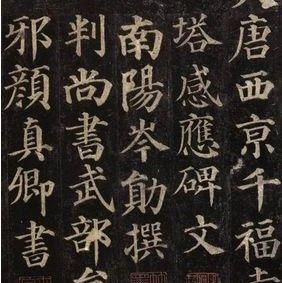 唐西亰千福
塔感應碑文
南陽岑勛撰
判尚書武部
邪顏真卿書